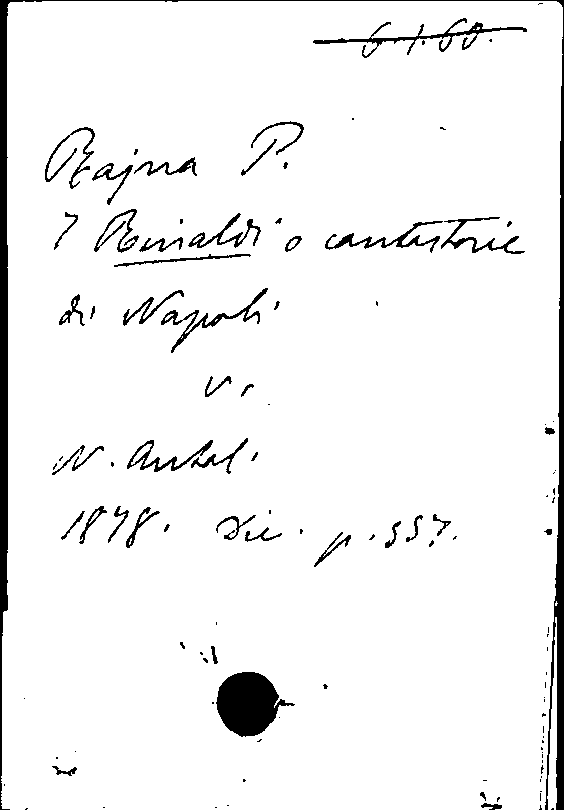 6.1.60.
Rajna P.
I Rinaldi o cantastorie
di Napoli
v.
N. Antol.
1878. Dic. p. 557.